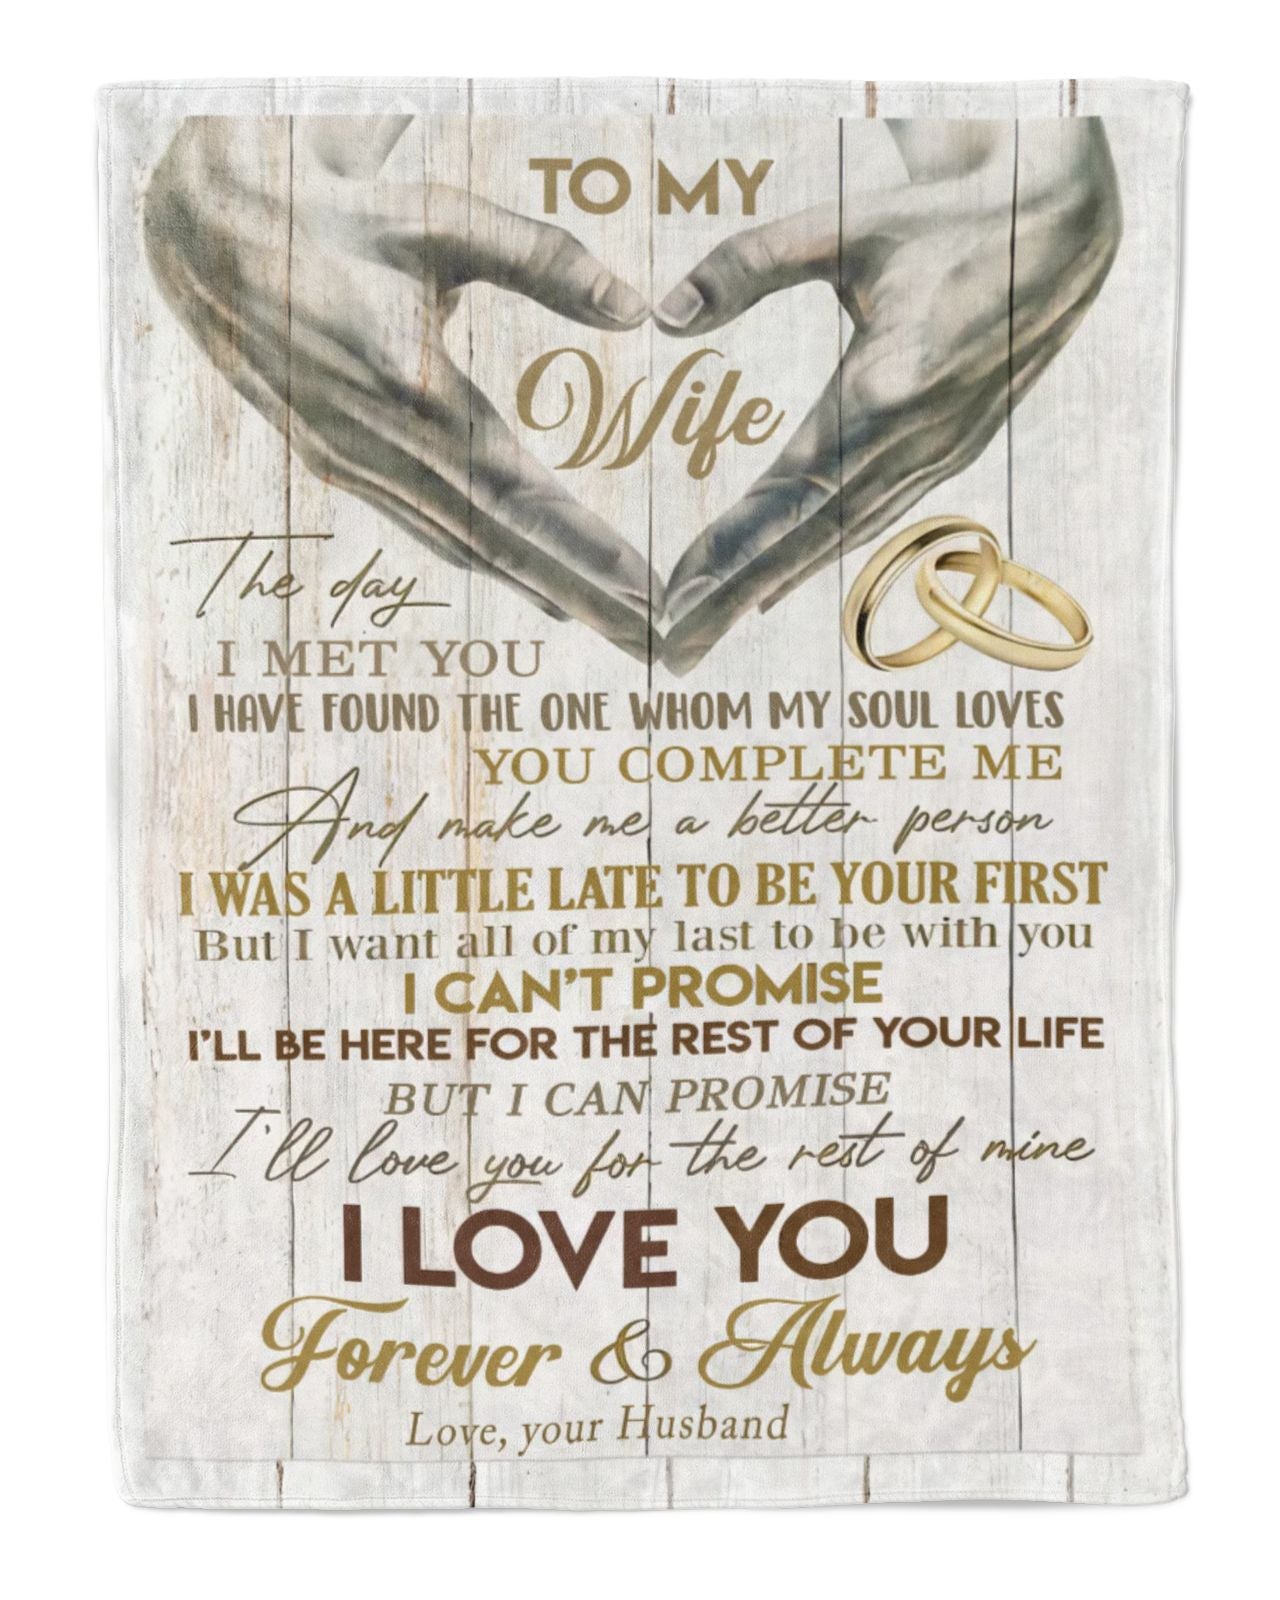 TO MY
Wife
The day
I MET YOU
I HAVE FOUND THE ONE WHOM MY SOUL LOVES
YOU COMPLETE ME
And make me a better person
I WAS A LITTLE LATE TO BE YOUR FIRST
But I want all of my last to be with you
I CAN'T PROMISE
I'LL BE HERE FOR THE REST OF YOUR LIFE
BUT I CAN PROMISE
I'll love you for the rest of mine
I LOVE YOU
Forever & Always
Love, your Husband